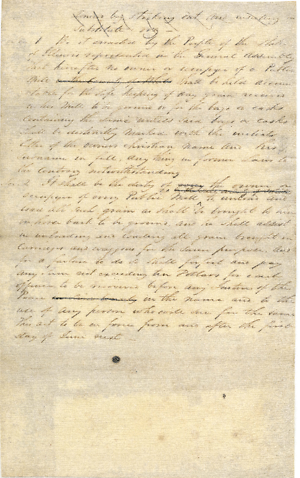 Amend by striking out and inserting
Substitute
1. Be it enacted by the People of the State
of Illinois represented in the General Assembly
that hereafter no owner or occupier of a Public
Mill shall be held accoun
table for the safe keeping of any grain received
in the Mill to be ground or for the bags or casks
containing the same unless said bags or casks
shall be distinctly marked with the initials
of the owners christian name and
surname in full. Any thing in former Laws to
the contrary notwithstanding
2 It shall be the duty of every the owner or
occupier of every Public Mill to unload and
load all such grain as shall be brought to
to be ground, and in shall assist
in unloading and loading all grain brought in
Carriages and waggons for the same purpose, and
for a failure to do so shall forfeit and pay
any sum not exceeding ten Dollars for each
offence to be recovered before any Justice of the
same in the name and to the
use of any person who will sue for the same
This act to be in force from and after the first
day of June next